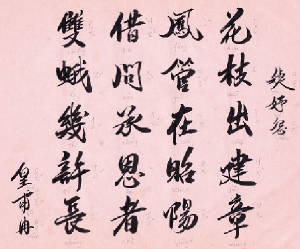 婕妤怨
花枝出建章
鳳管在昭陽
借問承恩者
雙蛾幾許長
皇甫冉